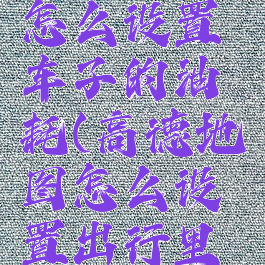 怎么设置
车子的油
耗(高德地
图怎么设
置出行里